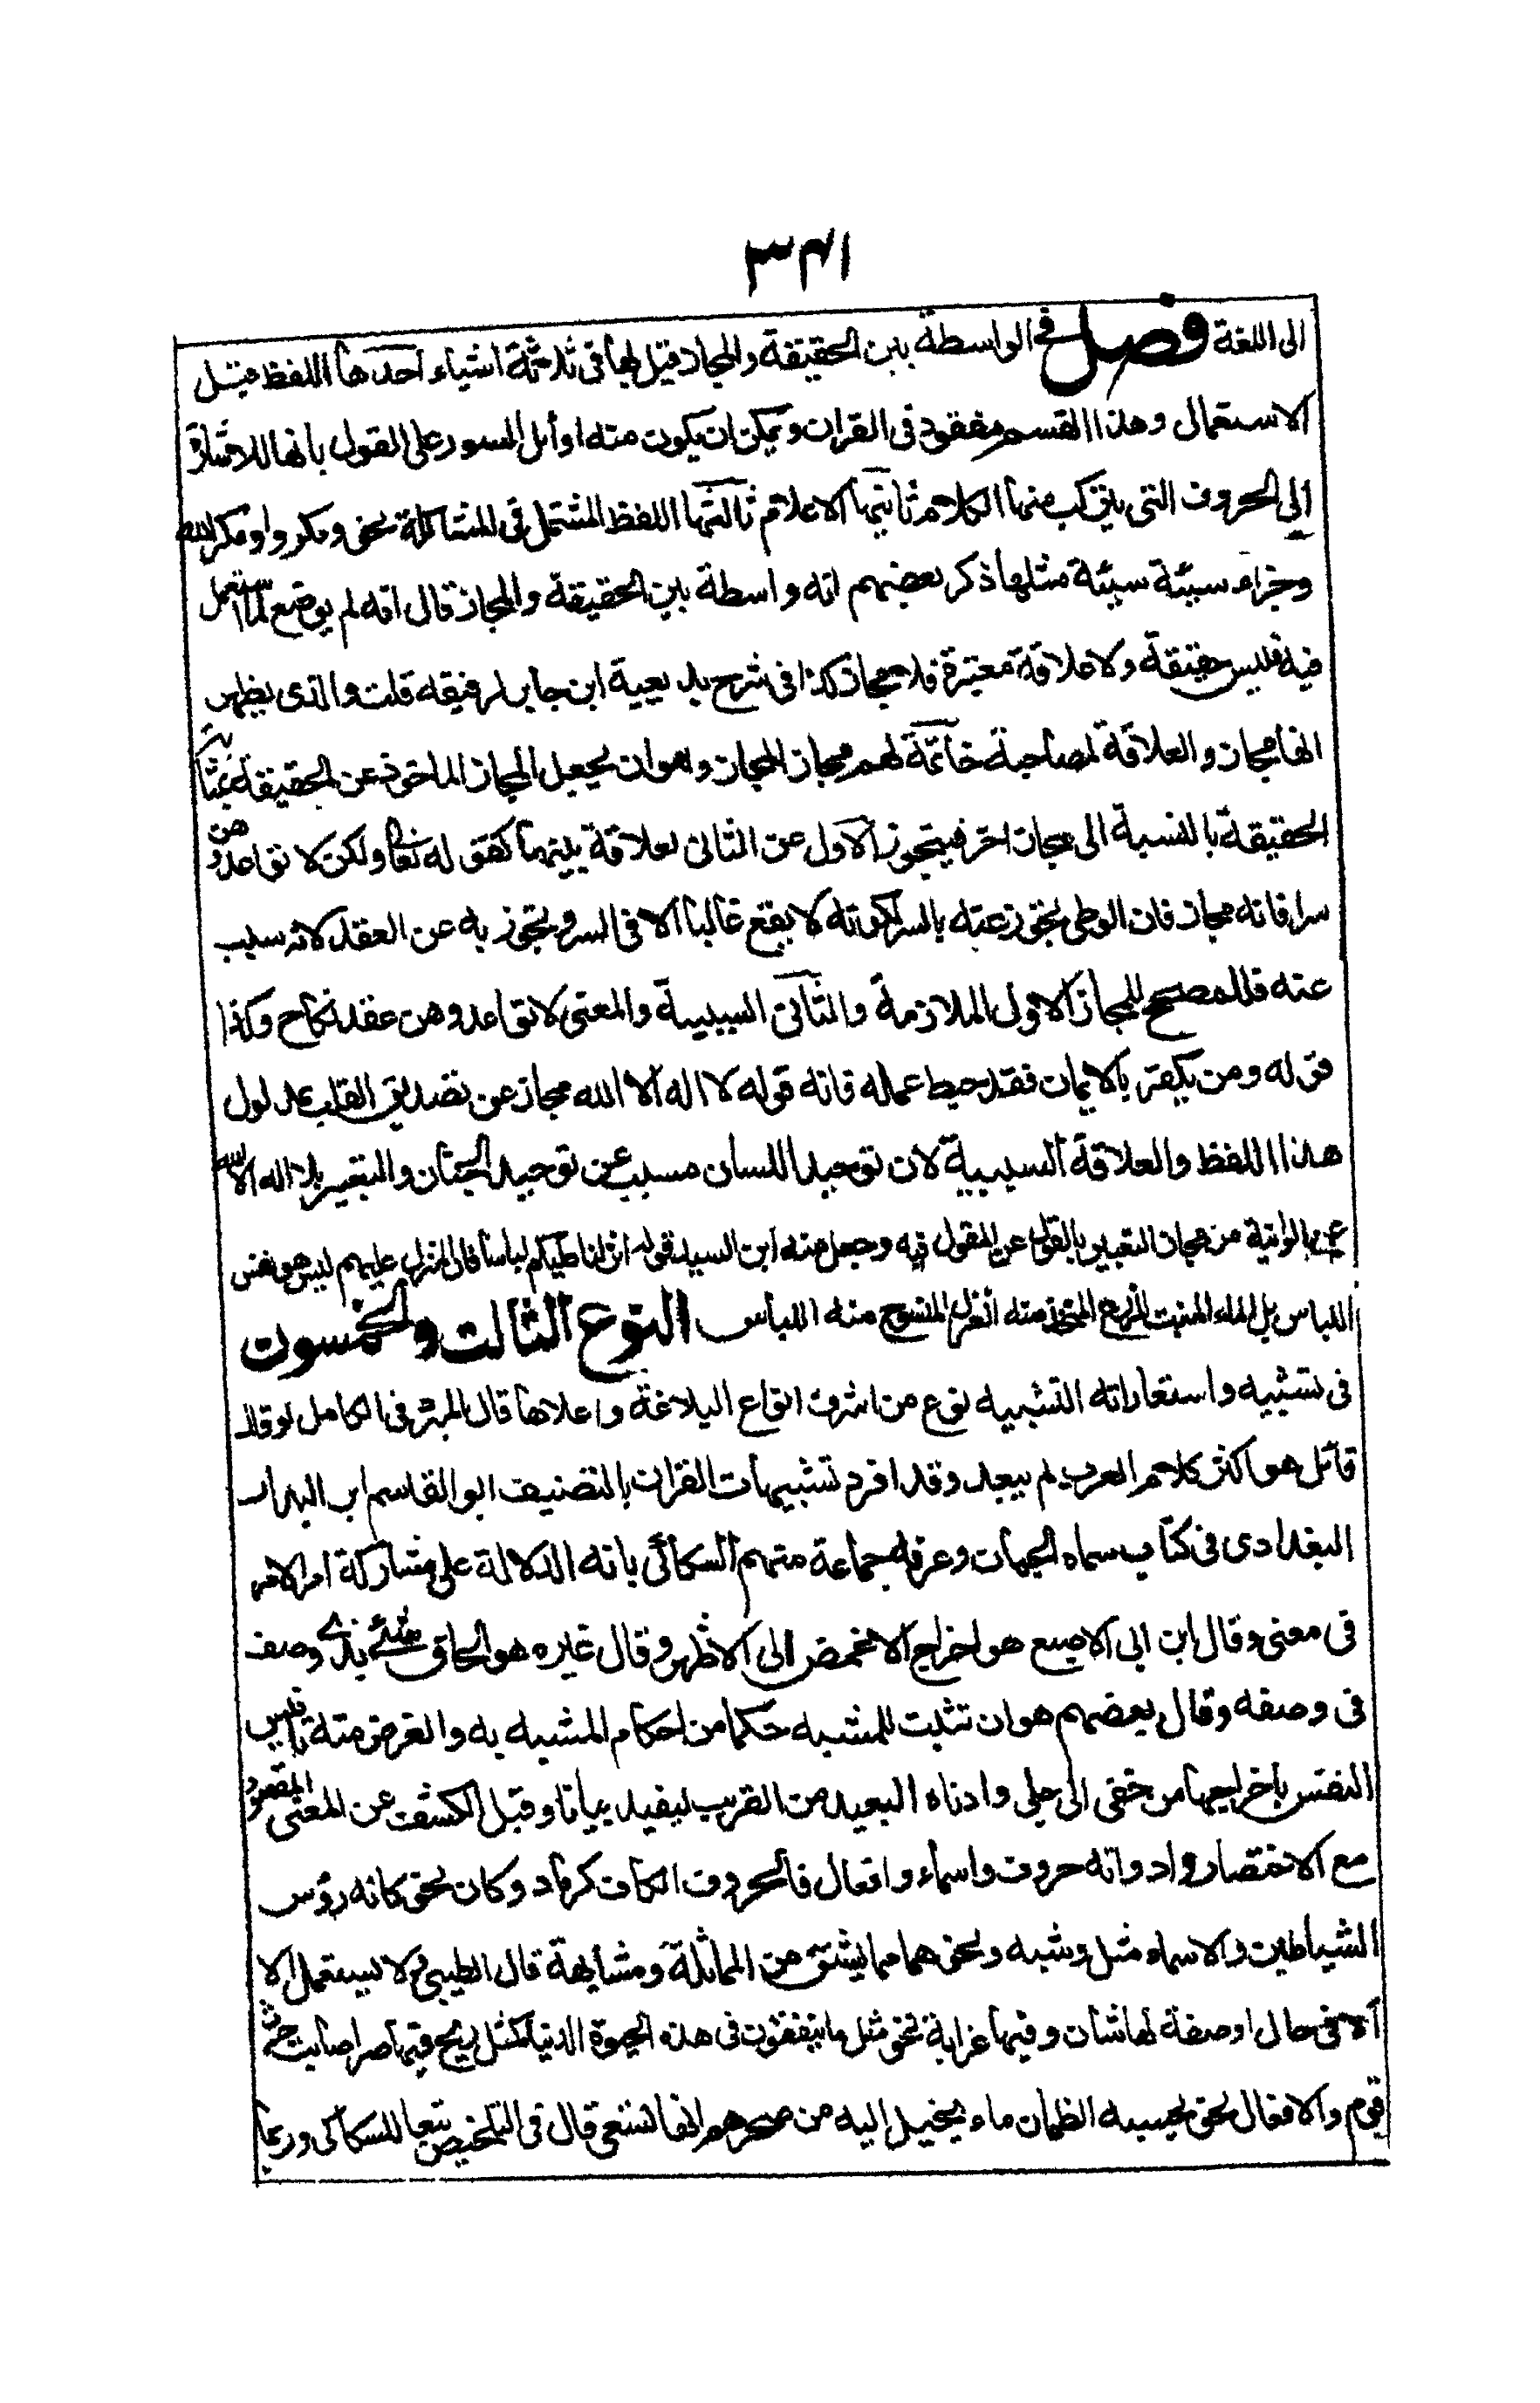 ٣٤١
الى اللغة فصل في الواسطة بين الحقيقة والمجاز قيل بها في ثلاثة اشياء احدها اللفظ قبل
الاستعمال وهذا القسم مفقود في القران ويمكن ان يكون منه اوائل السور على القول بانها للاشارة
الى الحروف التي يتركب منها الكلام ثانيها الاعلام ثالثها اللفظ المشتمل في المشاكلة نحو ومكروا ومكر الله
وجزاء سيئة سيئة مثلها ذكر بعضهم انه واسطة بين الحقيقة والمجاز قال انه لم يوضع لما استعمل
فيه فليس حقيقة ولا علاقة معتبرة فلا مجاز كذا في شرح بديعية ابن جابر لرفيقه قلت والذي يظهر
انها مجاز والعلاقة لمصاحبة خاتمة لهم مجاز المجاز وهو ان يجعل المجاز الماخوذ عن الحقيقة بمثابة
الحقيقة بالنسبة الى مجاز اخر فيتجوز الاول عن الثاني لعلاقة بينهما كقوله تعالى ولكن لا تواعدوهن
سرا فانه مجاز فان الوطي تجوز عنه بالسر لكونه لا يقع غالبا الا في السر وتجوز به عن العقد لانه سبب
عنه فالمصحح للمجاز الاول الملازمة والثاني السببية والمعنى لا تواعدوهن عقد نكاح وكذا
قوله ومن يكفر بالايمان فقد حبط عمله فانه قوله لا اله الا الله مجاز عن تصديق القلب بمدلول
هذا اللفظ والعلاقة السببية لان توحيد اللسان مسبب عن توحيد الجنان والتعبير بلا اله الا الله
عن الوحدانية من مجاز التعبير بالقول عن المقول فيه وجعل منه ابن السيد قوله انزلنا عليكم لباسا فان المنزل عليهم ليس هو نفس
اللباس بل الماء المنبت للزرع المتخذ منه الغزل المنسوج منه اللباس النوع الثالث والخمسون
في تشبيه واستعاراته التشبيه نوع من اشرف انواع البلاغة واعلاها قال المبرد في الكامل لو قال
قائل هو اكثر كلام العرب لم يبعد وقد افرد تشبيهات القران بالتصنيف ابو القاسم ابن البندار
البغدادي في كتاب سماه الجمان وعرفه جماعة منهم السكاكي بانه الدلالة على مشاركة امر لامر
في معنى وقال ابن ابي الاصبع هو اخراج الاغمض الى الاظهر وقال غيره هو الحاق شيئ بذي وصف
في وصفه وقال بعضهم هو ان تثبت للمشبه حكما من احكام المشبه به والغرض منه تانيس
النفس باخراجها من خفي الى جلي وادناه البعيد من القريب ليفيد بيانا وقيل الكشف عن المعنى المقصود
مع الاختصار وادواته حروف واسماء وافعال فالحروف الكاف كرماد وكان نحو كانه رؤس
الشياطين والاسماء مثل وشبه ونحوهما مما يشتق من المماثلة ومشابهة قال الطيبي ولا تستعمل الا
الا في حال او صفة لها شان وفيها غرابة نحو مثل ما ينفقون في هذه الحيوة الدنيا كمثل ريح فيها صر اصابت حرث
قوم والافعال نحو يحسبه الظمان ماء يخيل اليه من سحرهم انها تسعى قال في التلخيص تبعا للسكاكي وربما